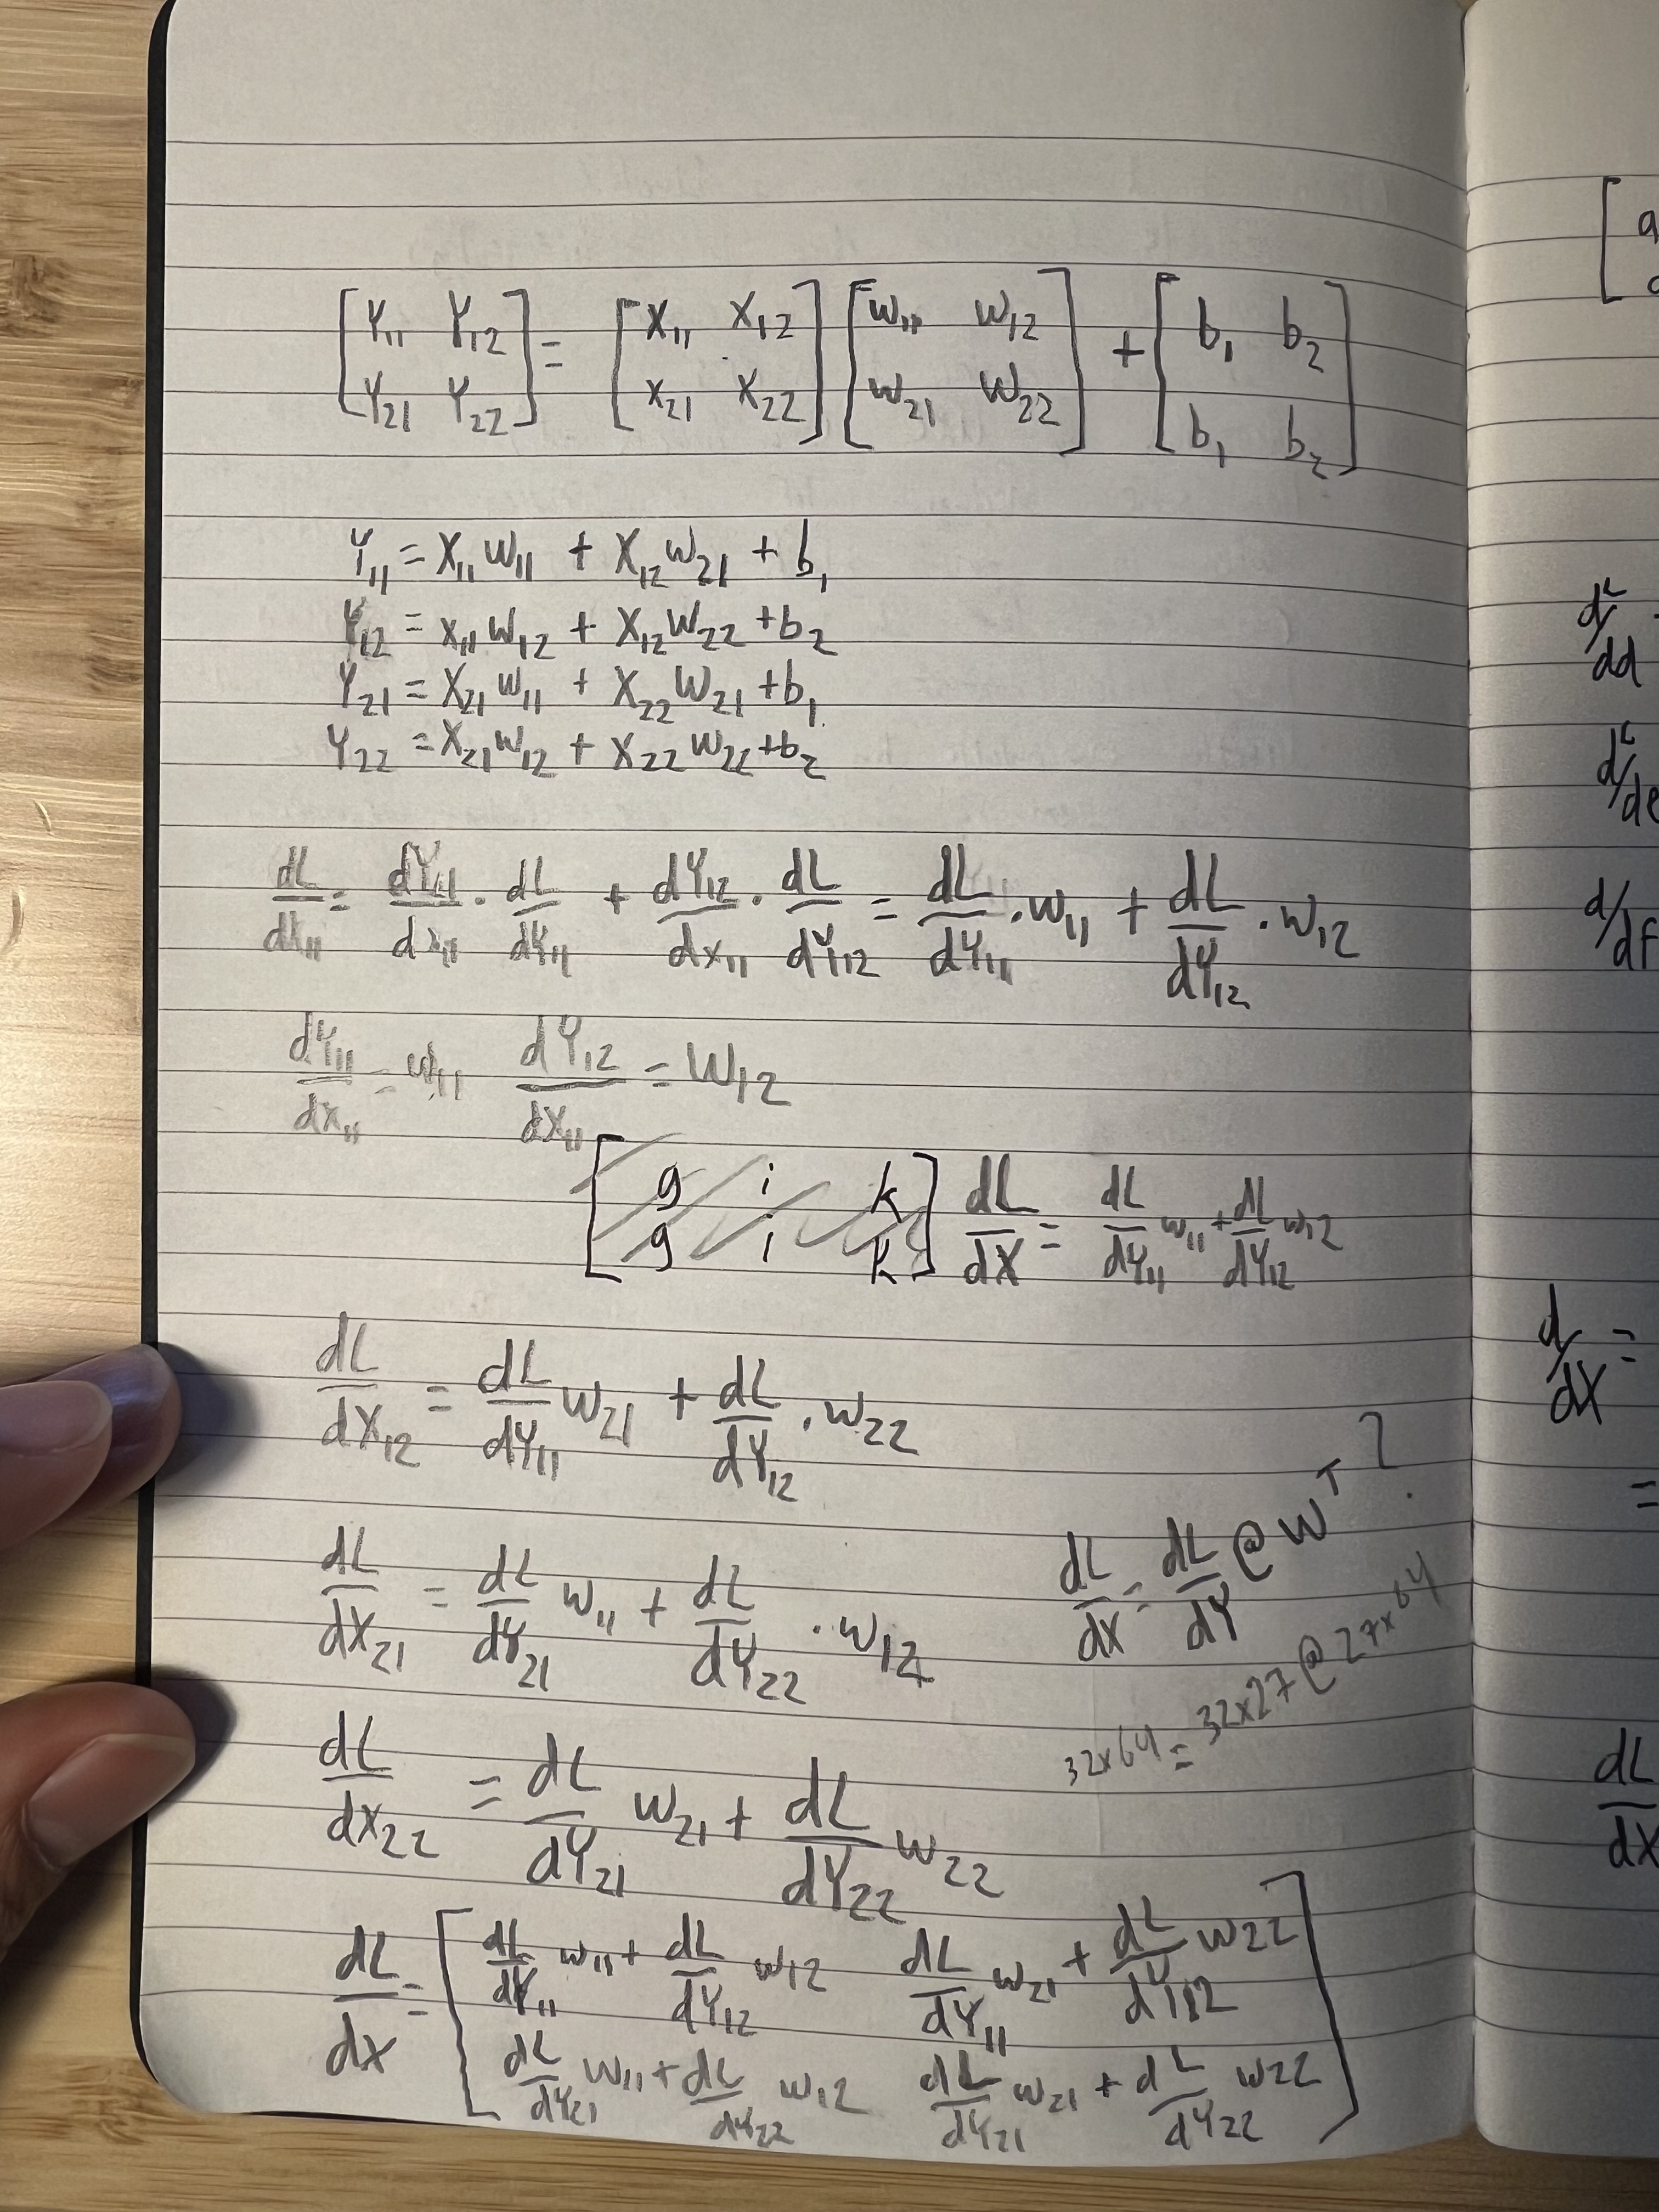 [Y₁₁ Y₁₂ = [X₁₁ X₁₂] [w₁₁ w₁₂] + [b₁ b₂]
Y₂₁ Y₂₂] [x₂₁ x₂₂] [w₂₁ w₂₂] [b₁ b₂]
Y₁₁ = X₁₁ w₁₁ + X₁₂ w₂₁ + b₁
Y₁₂ = x₁₁ w₁₂ + X₁₂ w₂₂ + b₂
Y₂₁ = X₂₁ w₁₁ + X₂₂ w₂₁ + b₁
Y₂₂ = X₂₁ w₁₂ + x₂₂ w₂₂ + b₂
dL/dx₁₁ = dY₁₁/dx₁₁ · dL/dY₁₁ + dY₁₂/dx₁₁ · dL/dY₁₂ = dL/dY₁₁ · w₁₁ + dL/dY₁₂ · w₁₂
dY₁₁/dx₁₁ = w₁₁ dY₁₂/dx₁₁ = w₁₂
[g i k
g i k] dL/dX = dL/dY₁₁ w₁₁ + dL/dY₁₂ w₁₂
dL/dX₁₂ = dL/dY₁₁ w₂₁ + dL/dY₁₂ · w₂₂
dL/dX₂₁ = dL/dY₂₁ w₁₁ + dL/dY₂₂ · w₁₂
dL/dX = dL/dY @ Wᵀ ?
32x64 = 32x27 @ 27x64
dL/dX₂₂ = dL/dY₂₁ w₂₁ + dL/dY₂₂ w₂₂
dL/dX = [dL/dY₁₁ w₁₁ + dL/dY₁₂ w₁₂ dL/dY₁₁ w₂₁ + dL/dY₁₂ w₂₂
dL/dY₂₁ w₁₁ + dL/dY₂₂ w₁₂ dL/dY₂₁ w₂₁ + dL/dY₂₂ w₂₂]
[a
dL/dd
dL/de
d/df
d/dX =
=
dL/dX